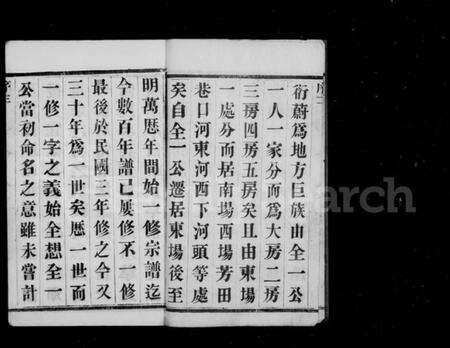 衍蔚爲地方巨族由全一公
一人一家分而爲大房二房
三房四房五房矣且由東場
一處分而居南場西場芳田
巷口河東河西下河頭等處
矣自全一公遷居東場後至
明萬厯年間始一修宗譜迄
今數百年譜已屢修不一修
最後於民國三年修之今又
三十年爲一世矣厯一世而
一修一字之義始全想全一
公當初命名之意雖未嘗計